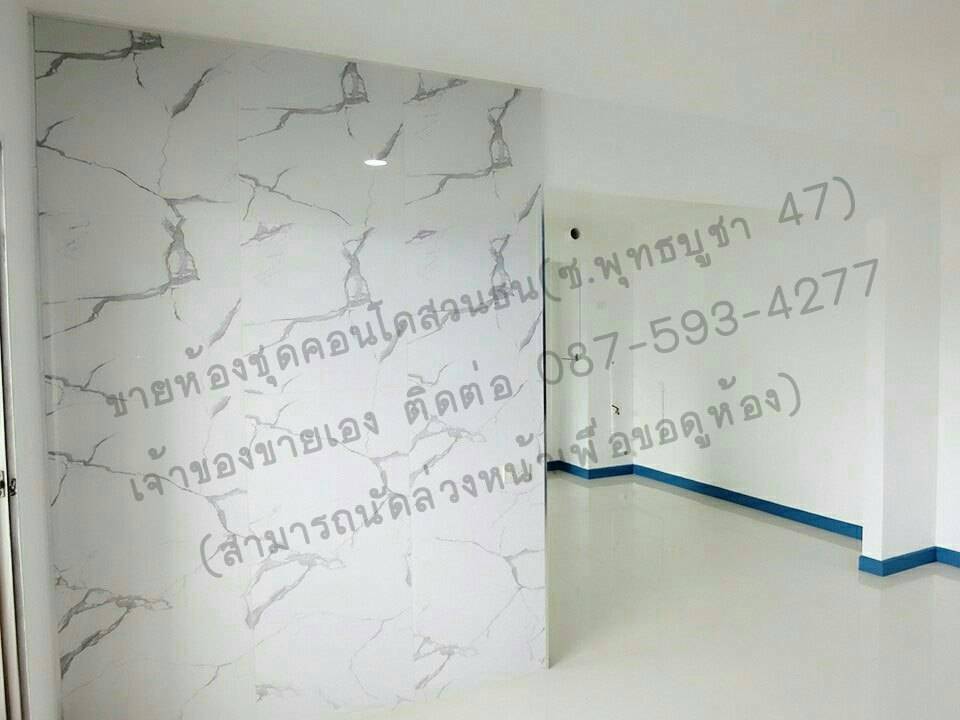 ขายห้องชุดคอนโดสวนธน(ซ.พุทธบูชา 47)
เจ้าของขายเอง ติดต่อ 087-593-4277
(สามารถนัดล่วงหน้าเพื่อขอดูห้อง)